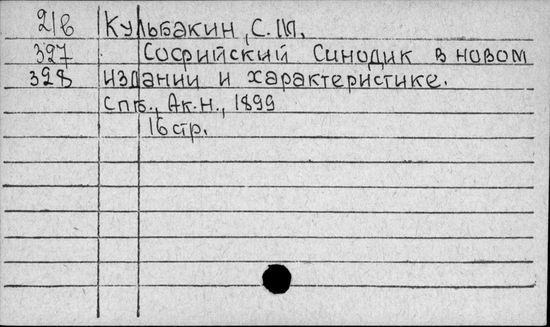 21в Кульбакин, С.М.
327 Софийский Синодик в новом
328 издании и характеристике.
Спб., Ак.Н., 1899
16 стр.